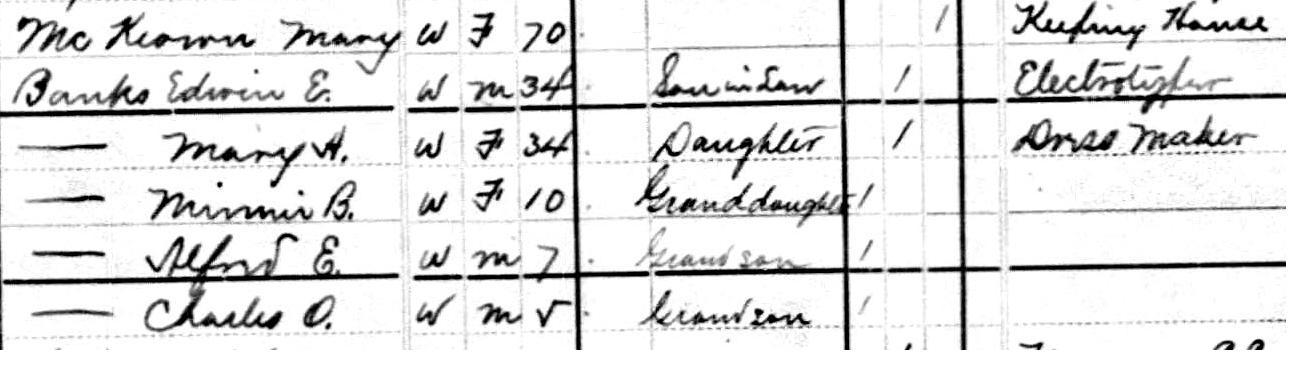 Mc Keown Mary W F 70 1 Keeping House
Banks Edwin E. W M 34 Son in Law 1 Electrotyper
— Mary A. W F 34 Daughter 1 Dress Maker
— Minnie B. W F 10 Granddaughter 1
— Alfred E. W M 7 Grandson 1
— Charles O. W M 5 Grandson 1